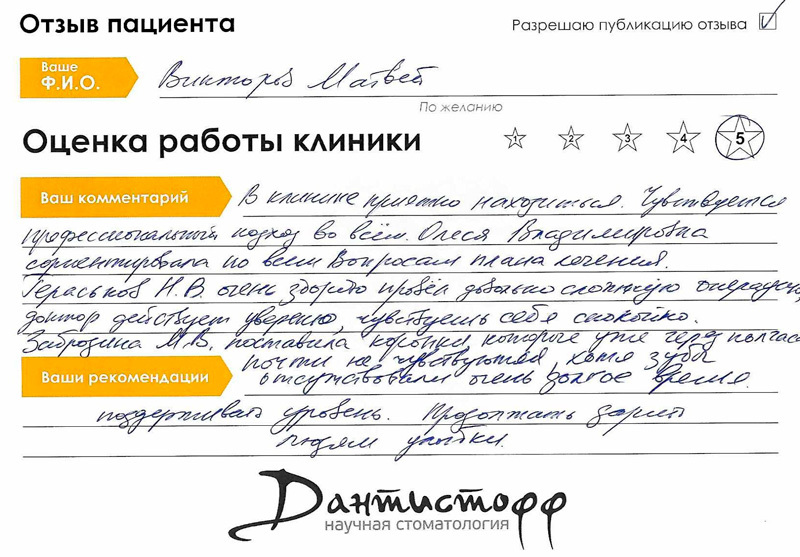 Отзыв пациента
Разрешаю публикацию отзыва
Ваше
Ф.И.О.
Викторов Матвей
По желанию
Оценка работы клиники
1 2 3 4 5
Ваш комментарий
В клинике приятно находиться. Чувствуется
профессиональный подход во всём. Олеся Владимировна
сориентировала по всем вопросам плана лечения.
Гераськов Н.В. очень здорово провёл довольно сложную операцию,
доктор действует уверенно, чувствуешь себя спокойно.
Заброзина М.В. поставила коронки, которые уже через полчаса
почти не чувствуются, хотя зубы
отсутствовали очень долгое время.
Ваши рекомендации
поддерживать уровень. Продолжать дарить
людям улыбки.
Дантистофф
научная стоматология